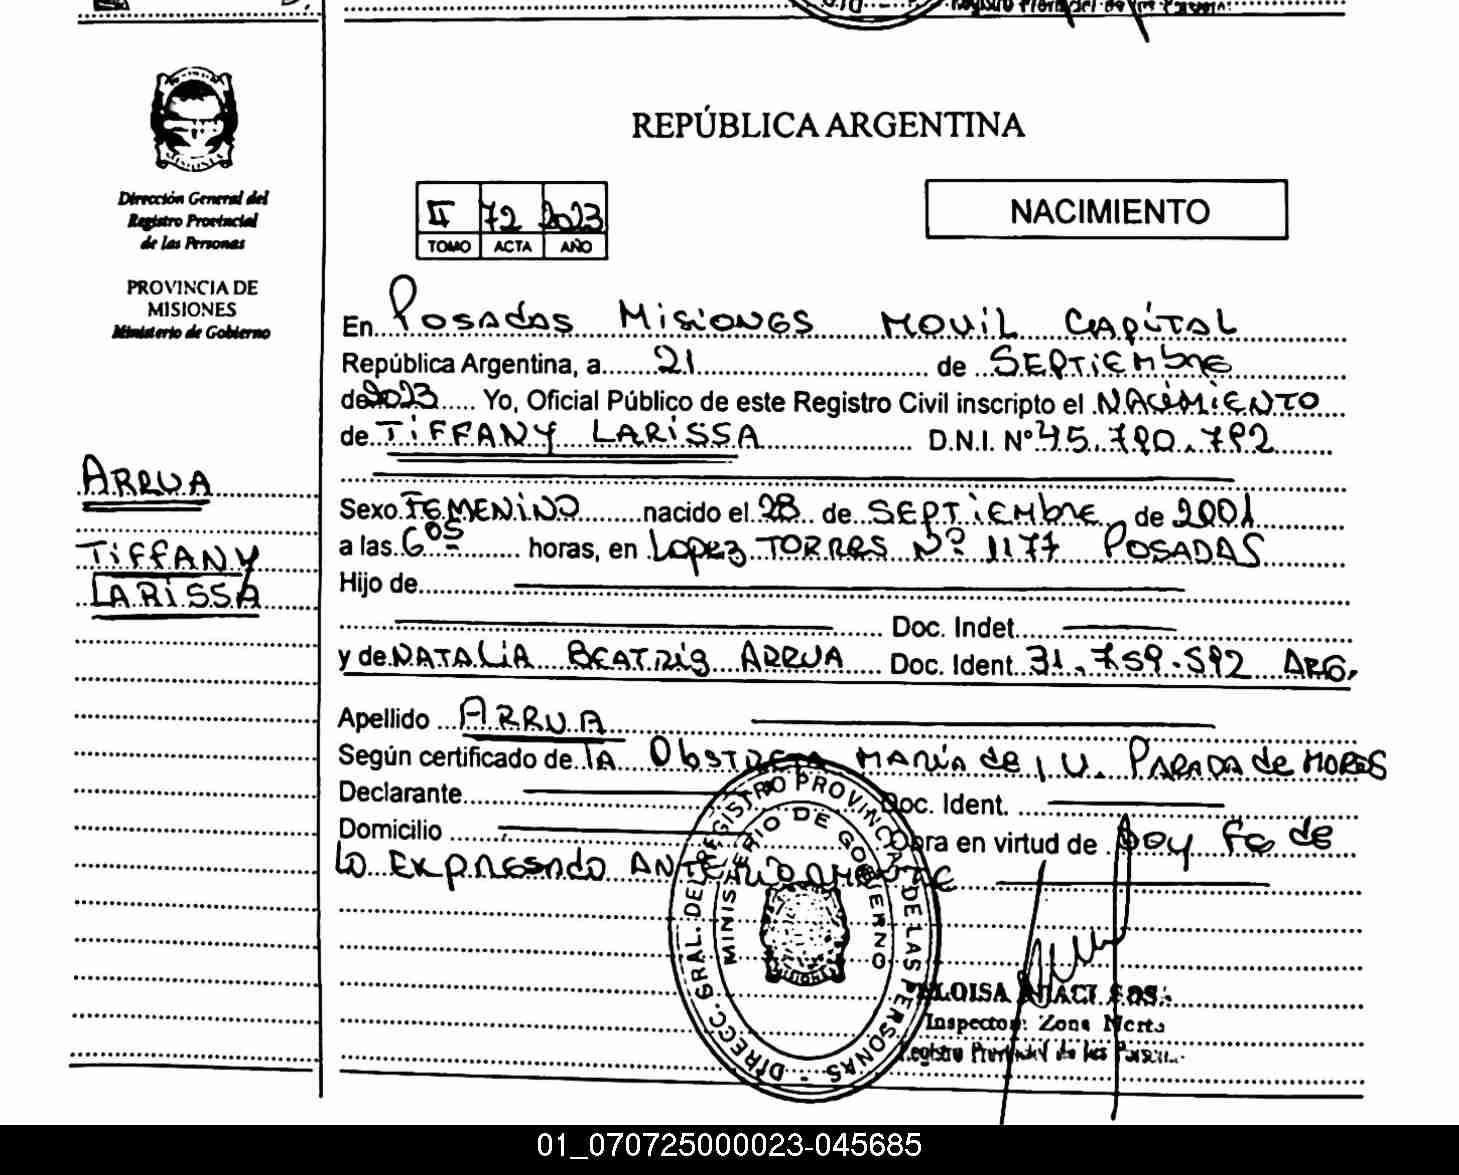 REPÚBLICA ARGENTINA
Dirección General del
Registro Provincial
de las Personas
PROVINCIA DE
MISIONES
Ministerio de Gobierno
II 72 2023
TOMO ACTA AÑO
NACIMIENTO
En Posadas Misiones Movil Capital
República Argentina, a 21 de SEPTIEMbre
de 2023 Yo, Oficial Público de este Registro Civil inscripto el NACIMIENTO
de TiFFANY LARiSSA D.N.I. Nº 45.790.792
ARRUA
TiFFANY
LARiSSA
Sexo FEMENiNO nacido el 28 de SEPTiEMbre de 2001
a las 6 05 horas, en Lopez TORRES Nº 1177 POSADAS
Hijo de
Doc. Indet.
y de NATALiA BEATRiz ARRUA Doc. Ident. 31.759.592 ARG.
Apellido ARRUA
Según certificado de la Obstreta María de I.U. PARADA de MORES
Declarante Doc. Ident.
Domicilio Obra en virtud de Doy Fe de
lo Expresado ANTERIORMENTE
DIRECC. GRAL. DEL REGISTRO PROVINCIAL DE LAS PERSONAS -
MINISTERIO DE GOBIERNO
MISIONES
Inspector: Zona Norte
Registro Provincial de las
01_070725000023-045685